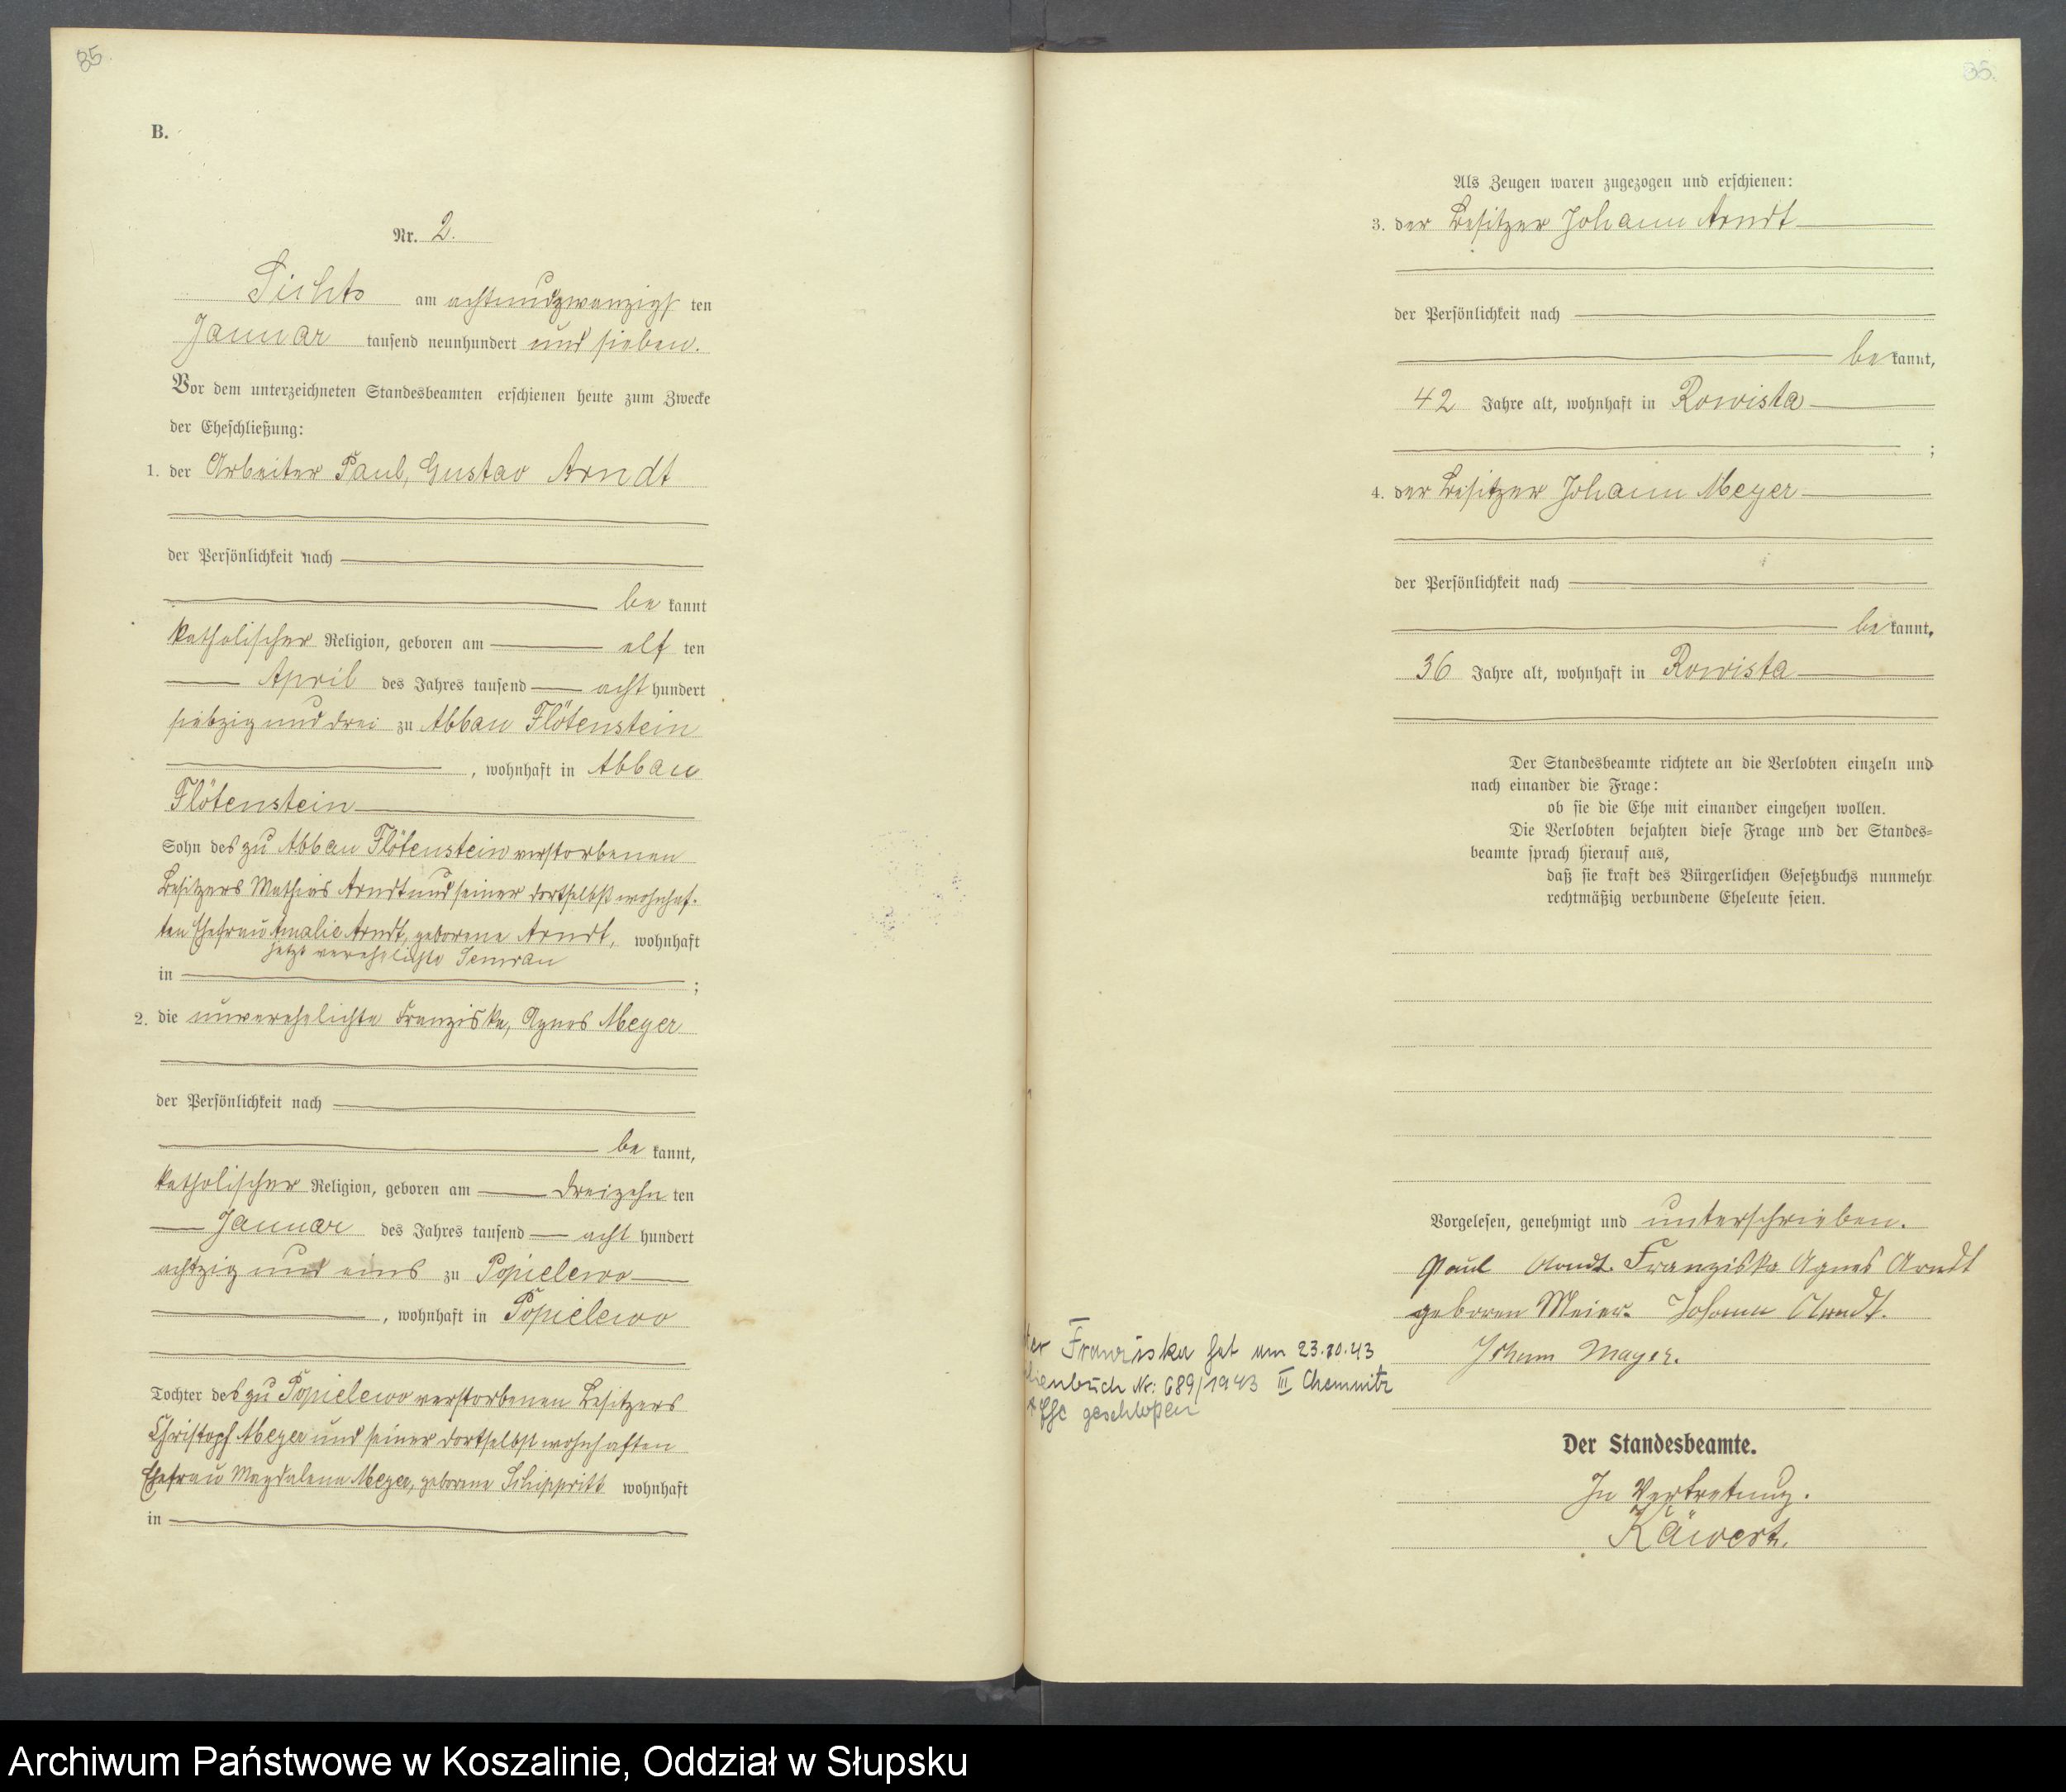 85
B.
Nr. 2.
Lichts am achtundzwanzigs ten
Januar tausend neunhundert und sieben.
Vor dem unterzeichneten Standesbeamten erschienen heute zum Zwecke
der Eheschließung:
1. der Arbeiter Paul, Gustav Arndt
der Persönlichkeit nach
be kannt
katholischer Religion, geboren am elf ten
April des Jahres tausend acht hundert
siebzig und drei zu Abbau Flötenstein
, wohnhaft in Abbau
Flötenstein
Sohn des zu Abbau Flötenstein verstorbenen
Besitzers Mathias Arndt und seiner dortselbst wohnhaf-
ten Ehefrau Amalie Arndt, geborene Arndt, wohnhaft
jetzt verehelichte Semrau
in ;
2. die unverehelichte Franziska, Agnes Meyer
der Persönlichkeit nach
be kannt,
katholischer Religion, geboren am dreizehn ten
Januar des Jahres tausend acht hundert
achtzig und eins zu Popielewo
, wohnhaft in Popielewo
Tochter des zu Popielewo verstorbenen Besitzers
Christoph Meyer und seiner dortselbst wohnhaften
Ehefrau Magdalena Meyer, geborene Schippritt wohnhaft
in
35.
Als Zeugen waren zugezogen und erschienen:
3. der Besitzer Johann Arndt
der Persönlichkeit nach
be kannt,
42 Jahre alt, wohnhaft in Rowista
;
4. der Besitzer Johann Meyer
der Persönlichkeit nach
be kannt,
36 Jahre alt, wohnhaft in Rowista
Der Standesbeamte richtete an die Verlobten einzeln und
nach einander die Frage:
ob sie die Ehe mit einander eingehen wollen.
Die Verlobten bejahten diese Frage und der Standes-
beamte sprach hierauf aus,
daß sie kraft des Bürgerlichen Gesetzbuchs nunmehr
rechtmäßig verbundene Eheleute seien.
Vorgelesen, genehmigt und unterschrieben.
Paul Arndt. Franziska Agnes Arndt
geboren Meier. Johann Arndt.
Johann Mayer.
ter Franziska hat am 23.10.43
lienbuch Nr: 689/1943 III Chemnitz
Ehe geschloßen
Der Standesbeamte.
In Vertretung.
Käwert.
Archiwum Państwowe w Koszalinie, Oddział w Słupsku